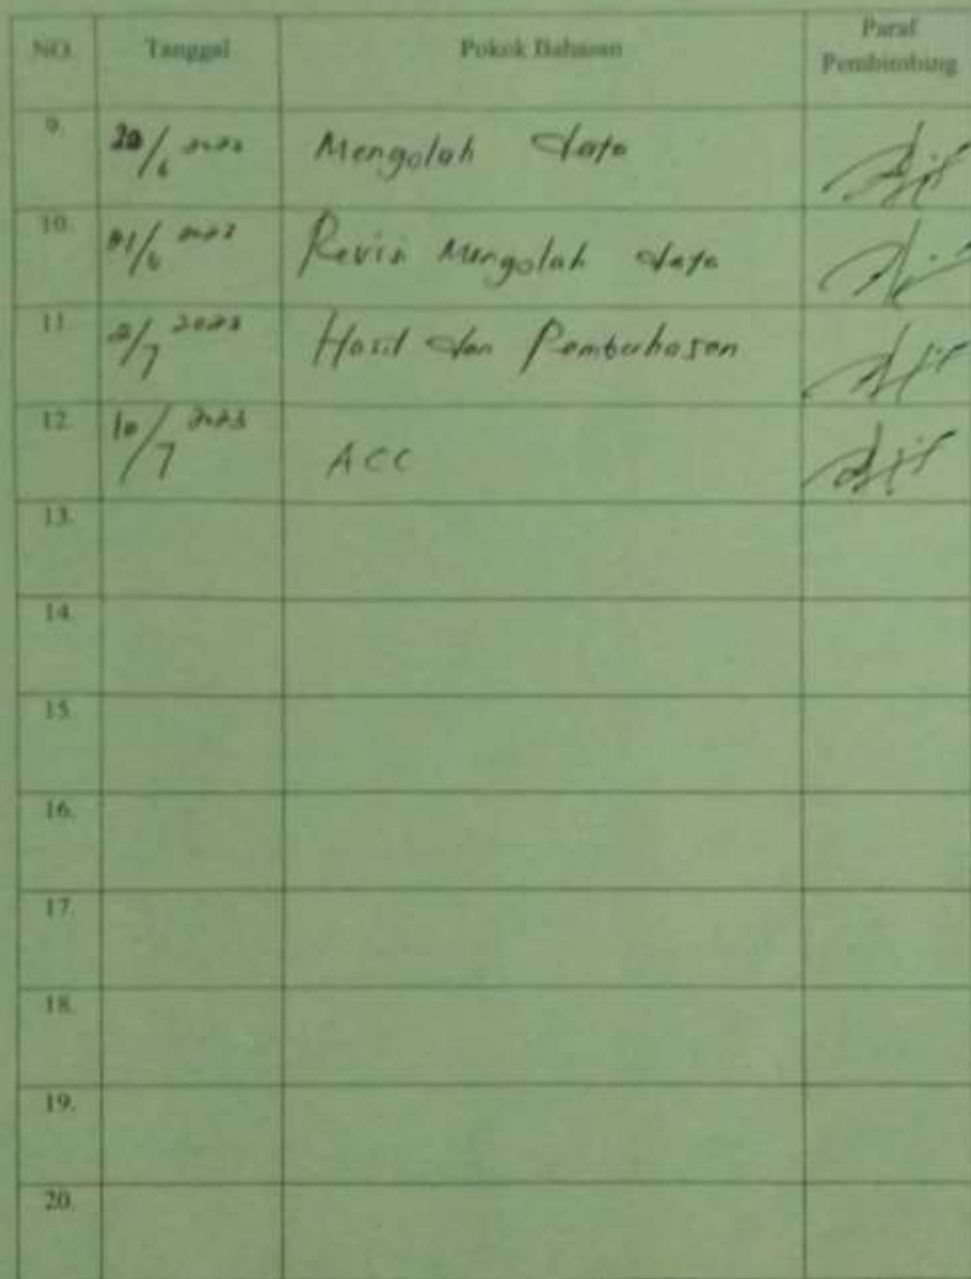 NO. Tanggal Pokok Bahasan Paraf
Pembimbing
9. Mengolah data
10. Revisi Mengolah data
11. 2/7 2023 Hasil dan Pembahasan
12. 10/7 2023 ACC
13.
14.
15.
16.
17.
18.
19.
20.